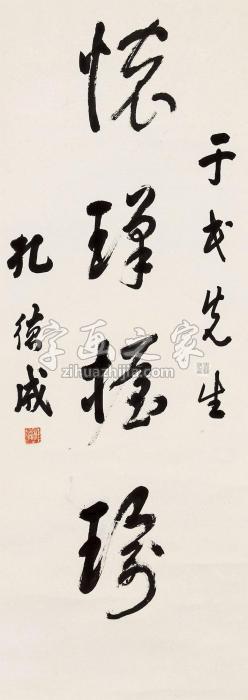 于戎先生
懷瑾握瑜
孔德成
字画之家
zihuazhijia.com